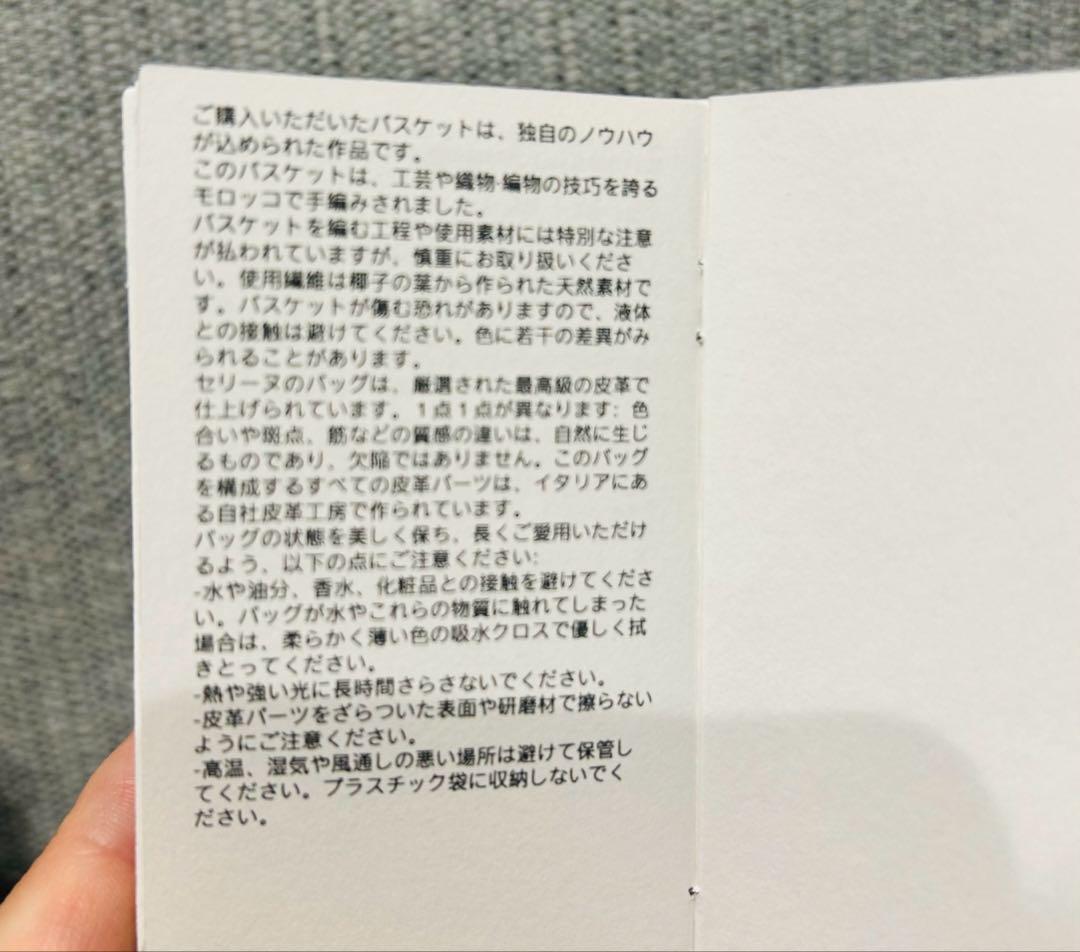 ご購入いただいたバスケットは、独自のノウハウ
が込められた作品です。
このバスケットは、工芸や織物·編物の技巧を誇る
モロッコで手編みされました。
バスケットを編む工程や使用素材には特別な注意
が払われていますが、慎重にお取り扱いくださ
い。使用繊維は椰子の葉から作られた天然素材で
す。バスケットが傷む恐れがありますので、液体
との接触は避けてください。色に若干の差異がみ
られることがあります。
セリーヌのバッグは、厳選された最高級の皮革で
仕上げられています。1点1点が異なります: 色
合いや斑点、筋などの質感の違いは、自然に生じ
るものであり、欠陥ではありません。このバッグ
を構成するすべての皮革パーツは、イタリアにあ
る自社皮革工房で作られています。
バッグの状態を美しく保ち、長くご愛用いただけ
るよう、以下の点にご注意ください:
-水や油分、香水、化粧品との接触を避けてくださ
い。バッグが水やこれらの物質に触れてしまった
場合は、柔らかく薄い色の吸水クロスで優しく拭
きとってください。
-熱や強い光に長時間さらさないでください。
-皮革パーツをざらついた表面や研磨材で擦らない
ようにご注意ください。
-高温、湿気や風通しの悪い場所は避けて保管し
てください。プラスチック袋に収納しないでく
ださい。